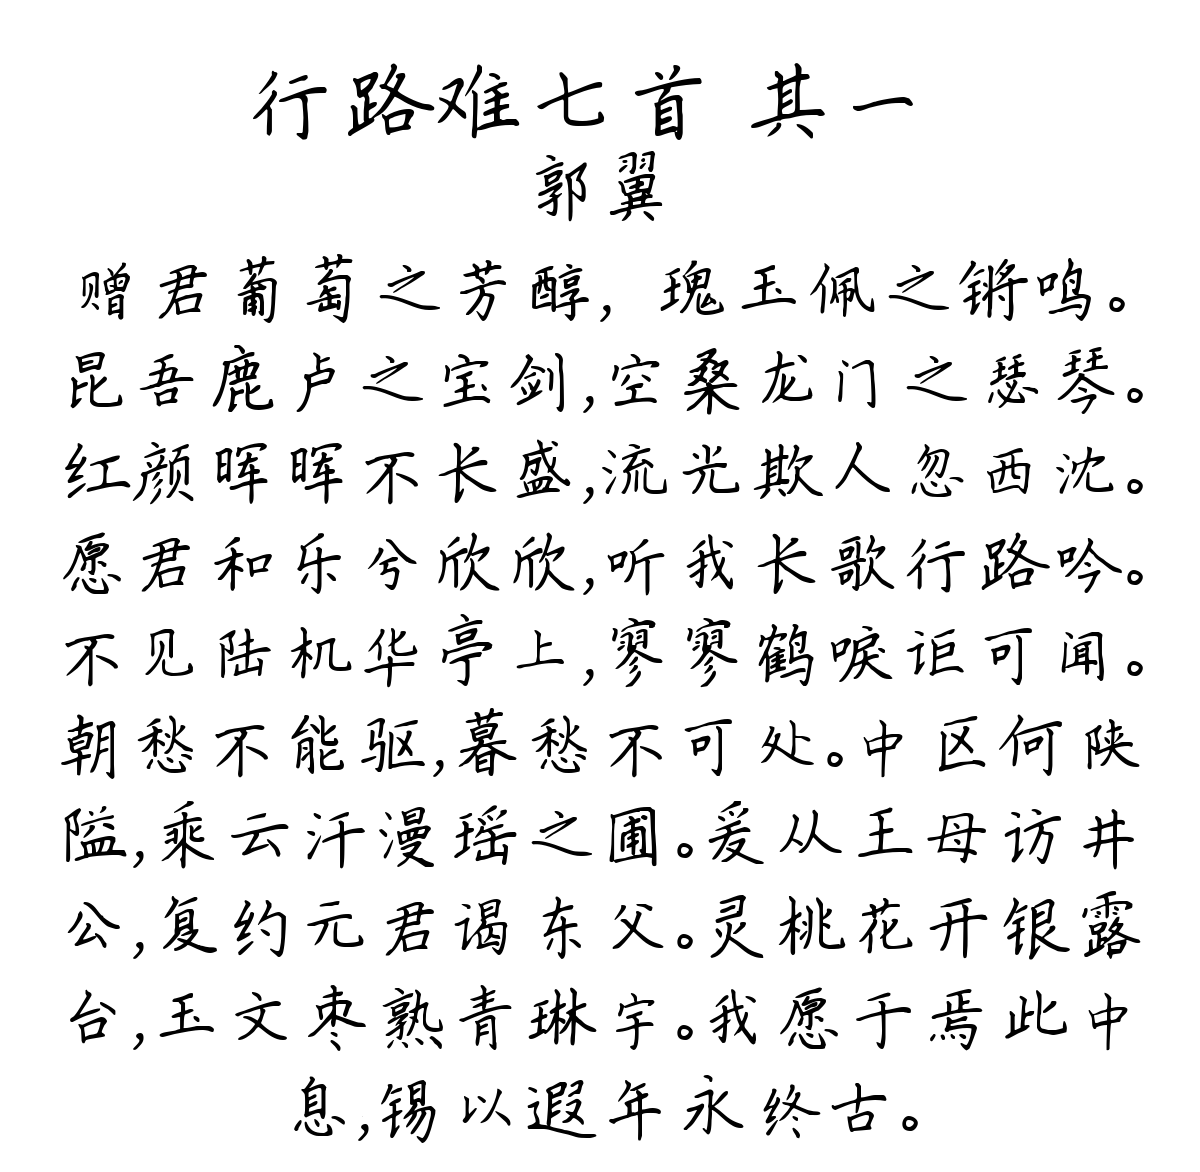 行路难七首 其一
郭翼
赠君葡萄之芳醇，瑰玉佩之锵鸣。
昆吾鹿卢之宝剑，空桑龙门之瑟琴。
红颜晖晖不长盛，流光欺人忽西沈。
愿君和乐兮欣欣，听我长歌行路吟。
不见陆机华亭上，寥寥鹤唳讵可闻。
朝愁不能驱，暮愁不可处。中区何陕
隘，乘云汗漫瑶之圃。爰从王母访井
公，复约元君谒东父。灵桃花开银露
台，玉文枣熟青琳宇。我愿于焉此中
息，锡以遐年永终古。